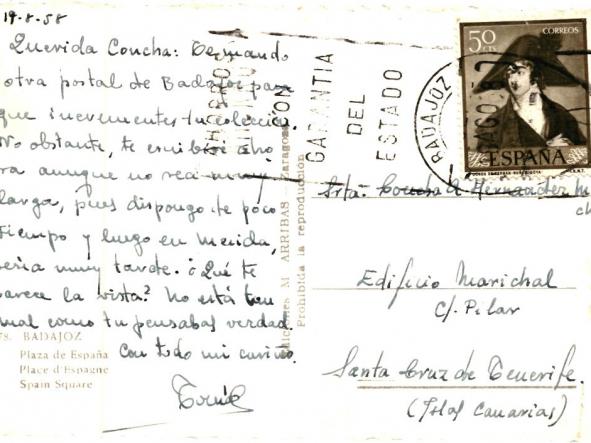 19-8-58
Querida Concha: Te mando
otra postal de Badajoz para
que incrementes tu colección
No obstante, te escribiré aho
ra aunque no sea muy
larga, pues dispongo de poco
tiempo y luego en Mérida,
sería muy tarde. ¿Qué te
parece la vista? No está tan
mal como tu pensabas verdad.
Con todo mi cariño.
78. BADAJOZ
Plaza de España
Place d'Espagne
Spain Square
Ediciones M. ARRIBAS Zaragoza
Prohibida la reproducción
AHORRO
CON
GARANTIA
DEL
ESTADO
BADAJOZ
50 CTS
CORREOS
ESPAÑA
Srta: Concha Hernández
Edificio Marichal
C/. Pilar
Santa Cruz de Tenerife
(Islas Canarias)